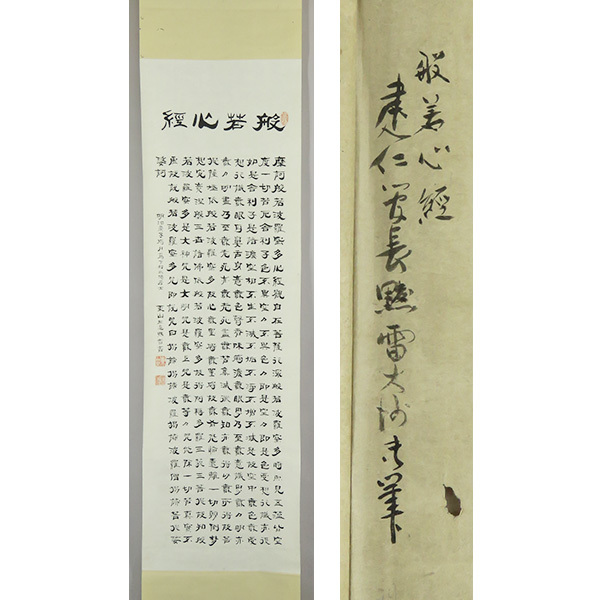 般若心經
摩訶般若波羅蜜多心經觀自在菩薩行深般若波羅蜜多時照見五蘊皆空
度一切苦厄舍利子色不異空々不異色色即是空々即是色受想行識亦復
如是舍利子是諸法空相不生不滅不垢不淨不增不減是故空中無色無受
想行識無眼耳鼻舌身意無色聲香味觸法無眼界乃至無意識界無々明亦
無々明盡乃至無老死亦無老死盡無苦集滅道無智亦無得以無所得故菩
提薩埵依般若波羅蜜多故心無罣礙無罣礙故無有恐怖遠離一切顛倒夢
想究竟涅槃三世諸佛依般若波羅蜜多故得阿耨多羅三藐三菩提故知般
若波羅蜜多是大神咒是大明咒是無上咒是無等々咒能除一切苦真實不
虛故說般若波羅蜜多咒即說咒曰揭諦揭諦波羅揭諦波羅僧揭諦菩提薩
婆訶
般若心經
建仁管長黙雷大師真筆